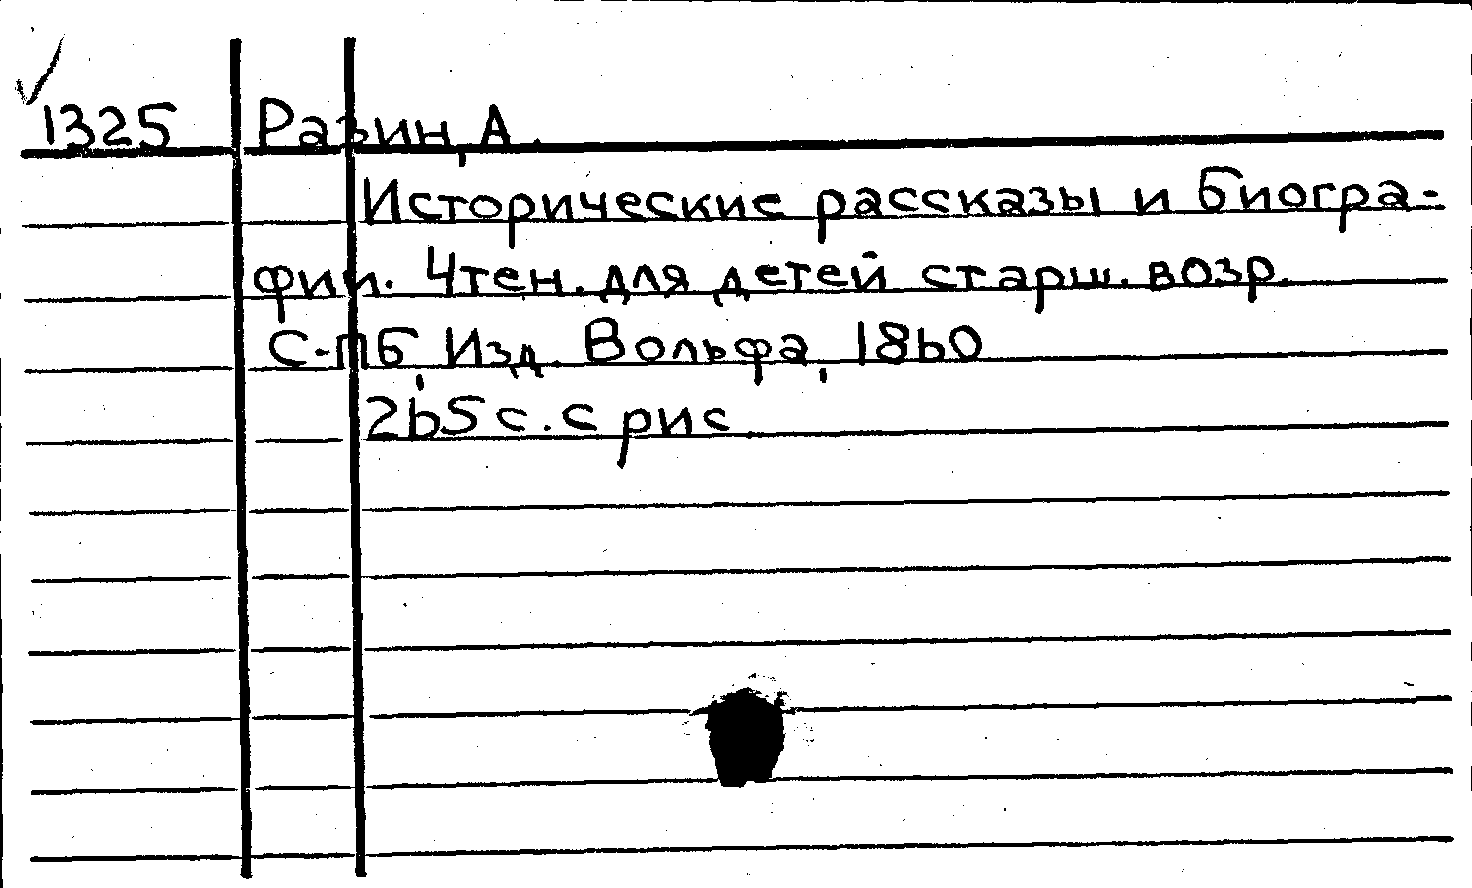 1325 Разин, А.
Исторические рассказы и биогра-
фии. Чтен. для детей старш. возр.
С-ПБ, Изд. Вольфа, 1860
265 с. с рис